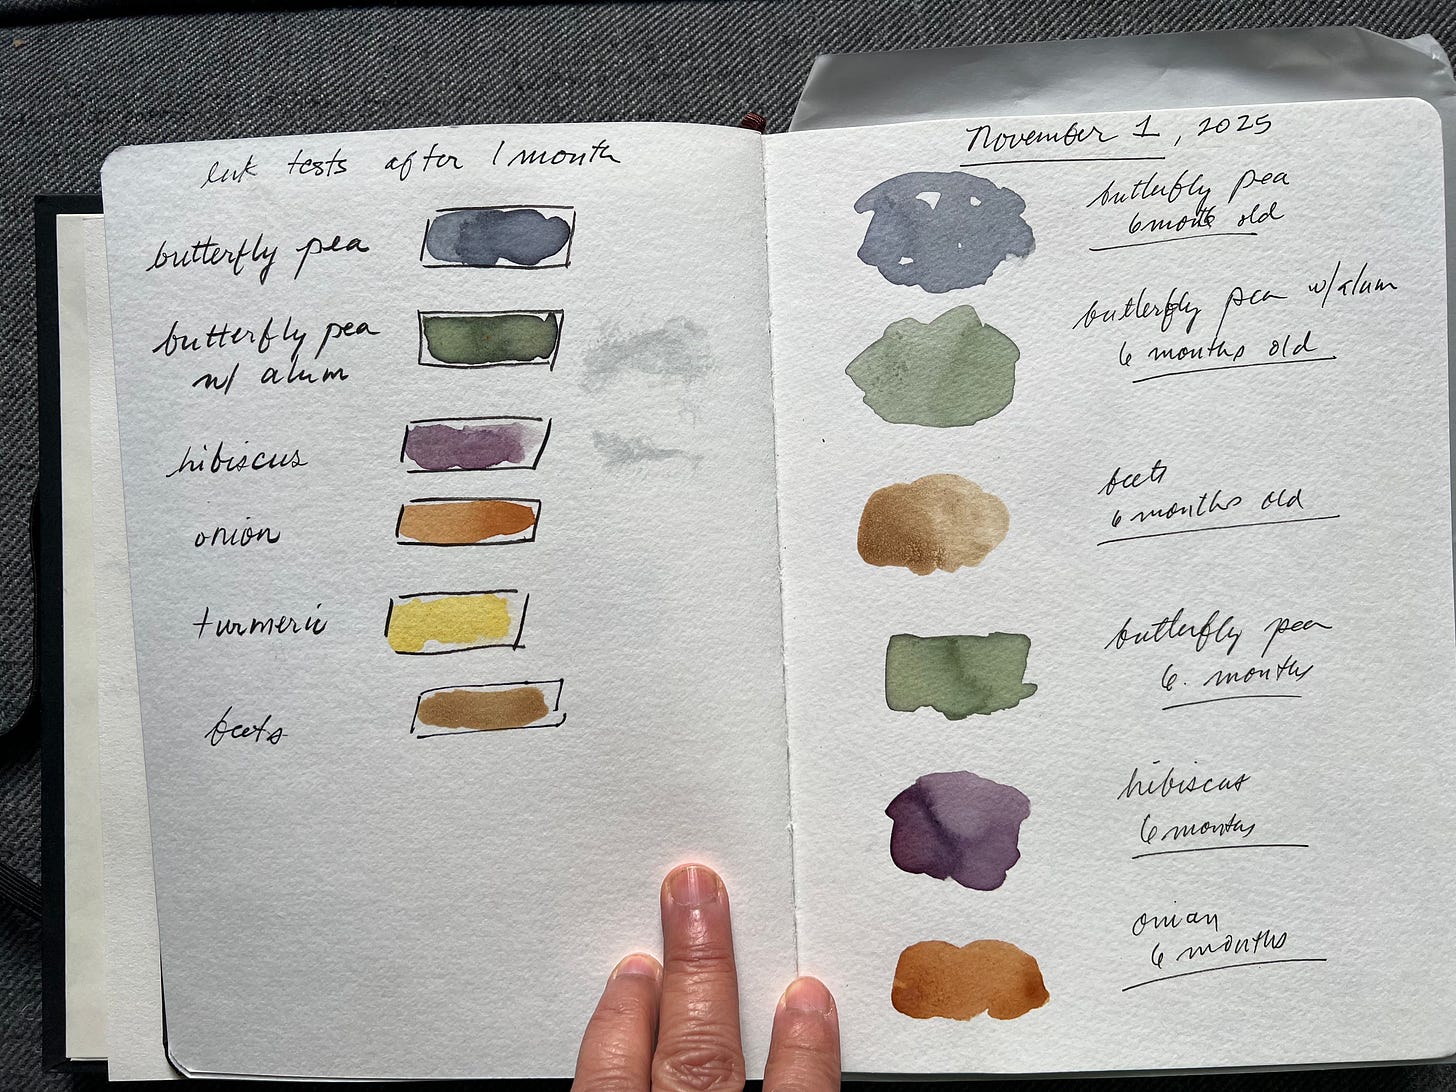 ink tests after 1 month
butterfly pea
butterfly pea
w/ alum
hibiscus
onion
turmeric
beets
November 1, 2025
butterfly pea
6 month old
butterfly pea w/alum
6 months old
beets
6 months old
butterfly pea
6. months
hibiscus
6 months
onion
6 months